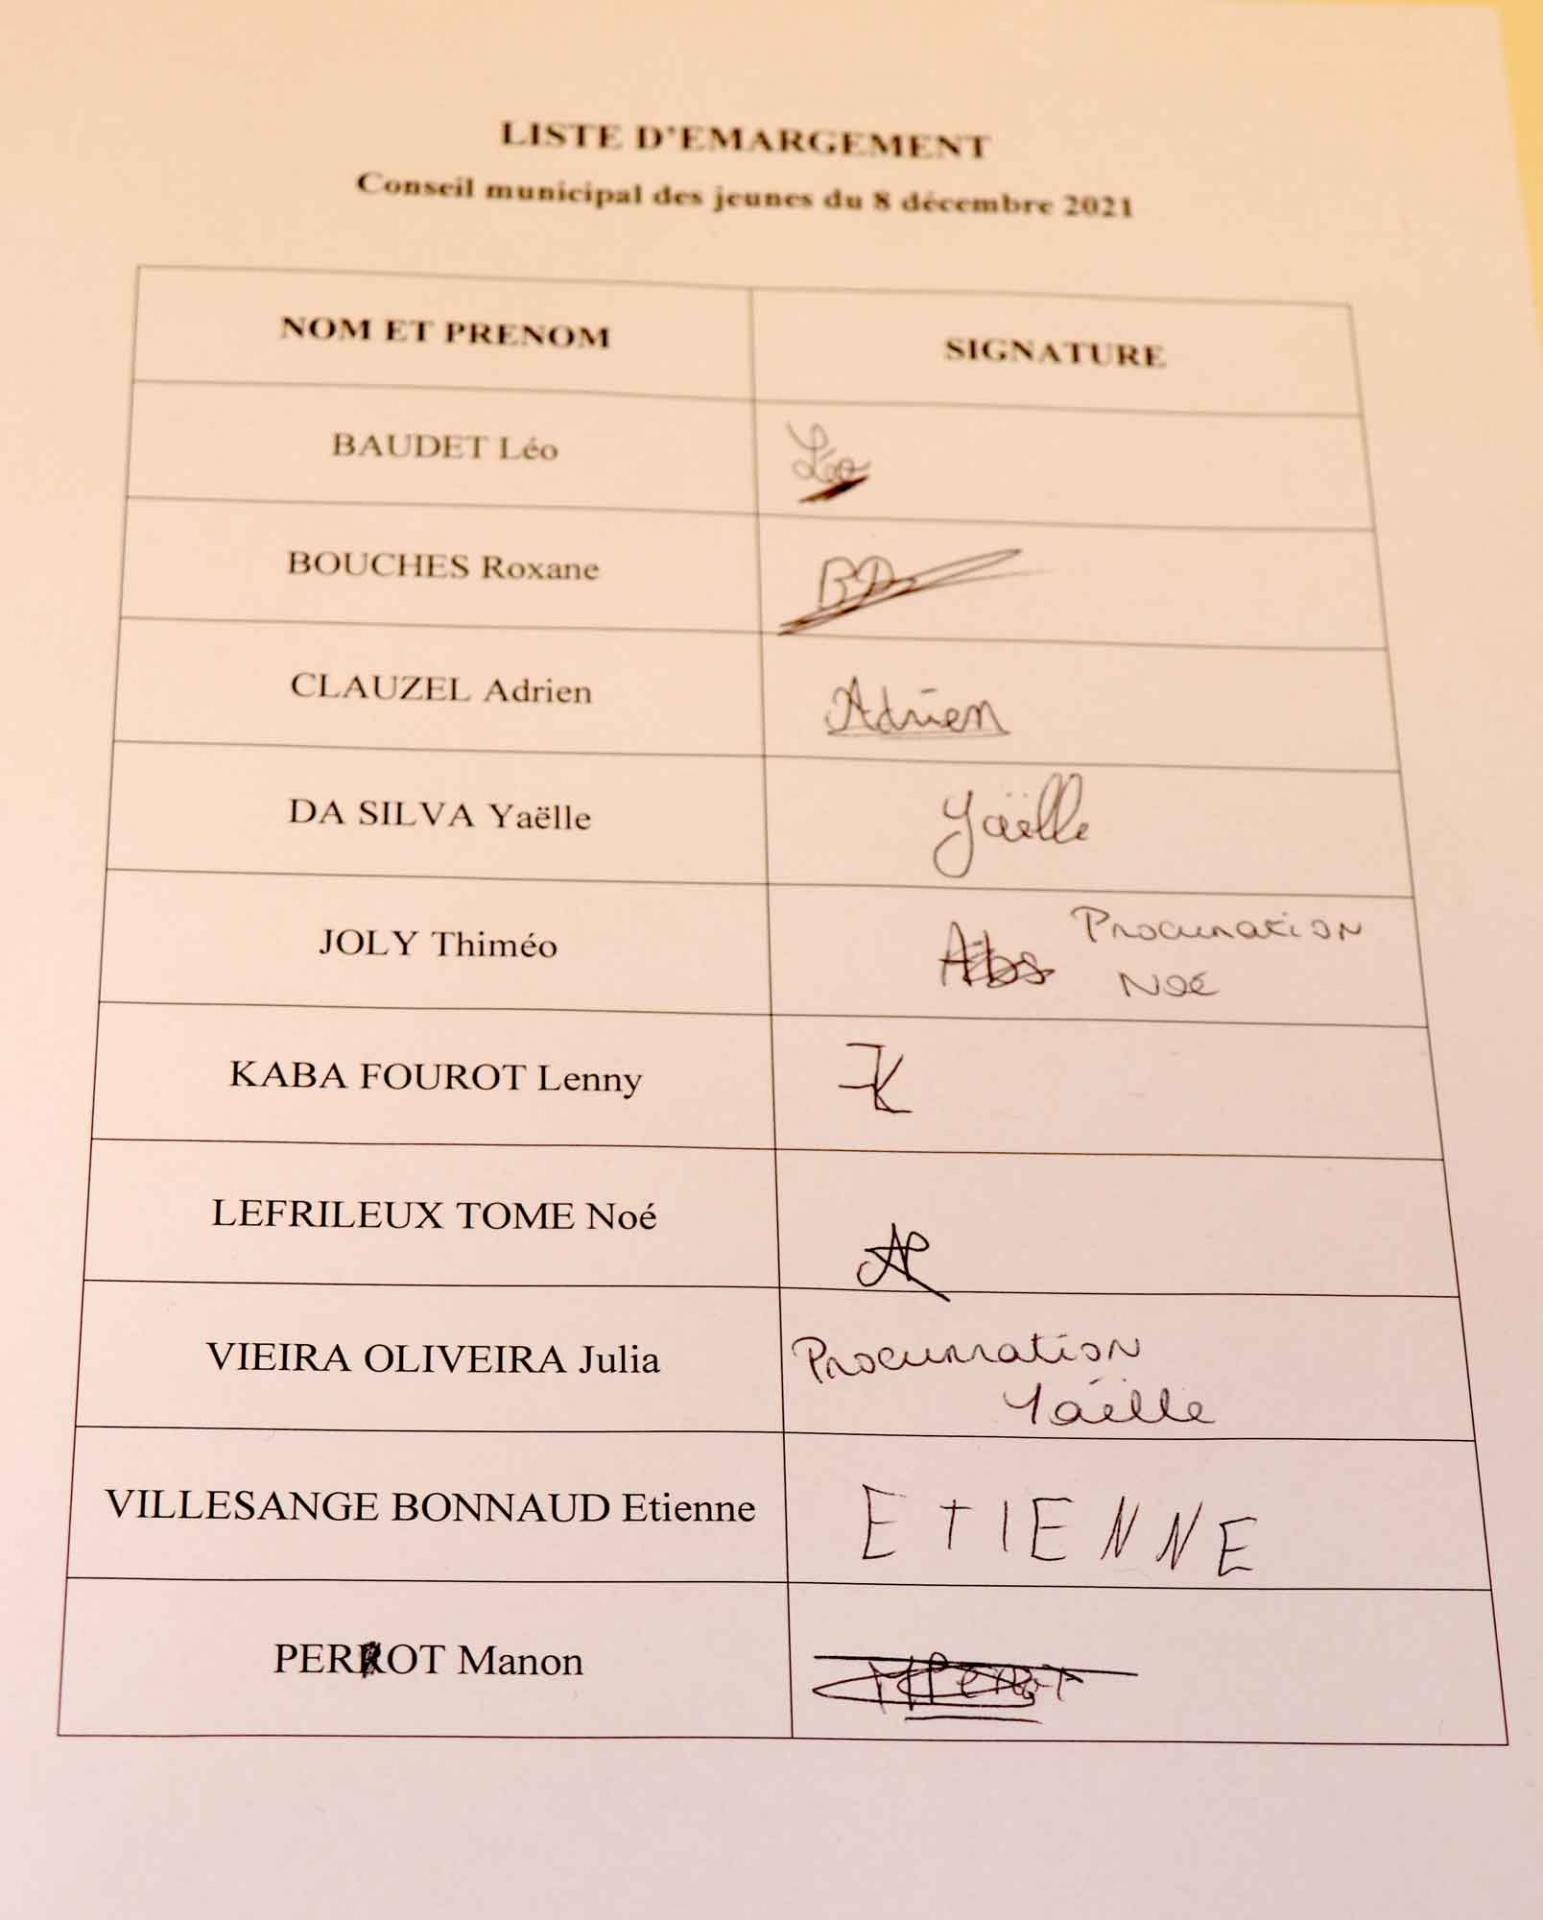 LISTE D'EMARGEMENT
Conseil municipal des jeunes du 8 décembre 2021
NOM ET PRENOM SIGNATURE
BAUDET Léo Léo
BOUCHES Roxane
CLAUZEL Adrien Adrien
DA SILVA Yaëlle Yaëlle
JOLY Thiméo Abs Procuration
Noé
KABA FOUROT Lenny
LEFRILEUX TOME Noé
VIEIRA OLIVEIRA Julia Procuration
Yaëlle
VILLESANGE BONNAUD Etienne ETIENNE
PEROT Manon